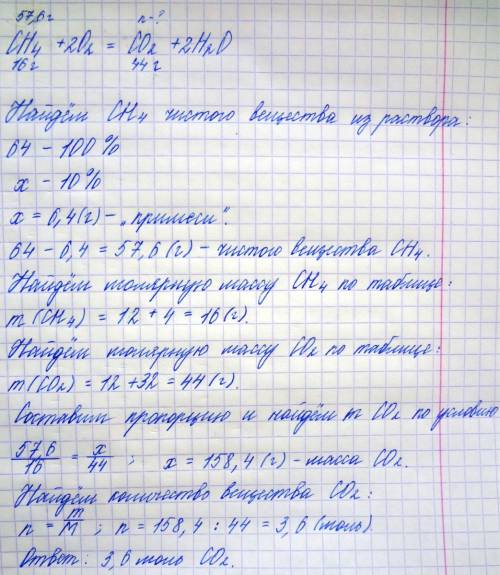 57,6г n-?
CH4 + 2O2 = CO2 + 2H2O
16г 44г
Найдём CH4 чистого вещества из раствора:
64 - 100%
x - 10%
x = 6,4(г) - „примеси".
64 - 6,4 = 57,6(г) - чистого вещества CH4.
Найдём молярную массу CH4 по таблице:
m(CH4) = 12 + 4 = 16(г).
Найдём молярную массу CO2 по таблице:
m(CO2) = 12 + 32 = 44(г).
Составим пропорцию и найдём m CO2 по условию
57,6/16 = x/44; x = 158,4(г) - масса CO2.
Найдём количество вещества CO2:
n = m/M; n = 158,4 : 44 = 3,6(моль)
Ответ: 3,6 моль CO2.